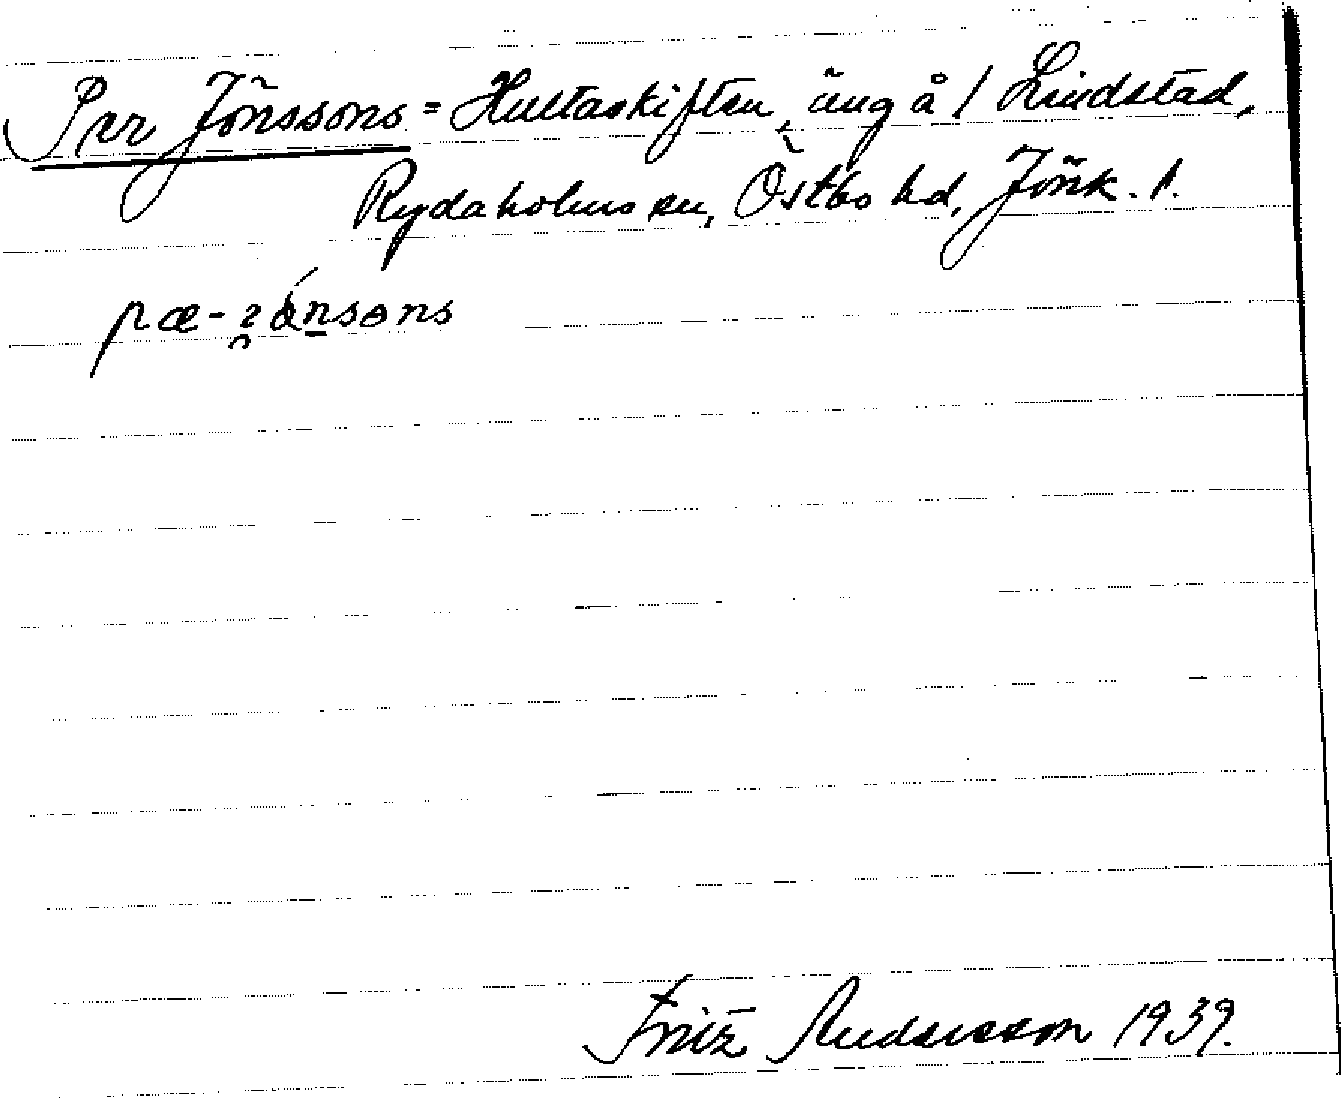 Per Jönssons = Hultaskiften, äng å 1 Lindstad,
Rydaholms sn, Östbo hd, Jönk. l.
Fritz Andersson 1939.